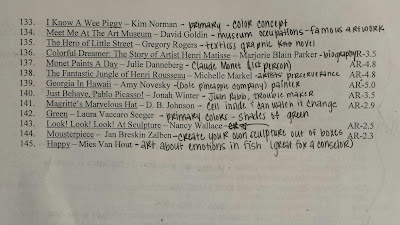 133. I Know A Wee Piggy – Kim Norman - primary - color concept
134. Meet Me At The Art Museum – David Goldin - museum occupations - famous artwork
135. The Hero of Little Street – Gregory Rogers - textless graphic novel
136. Colorful Dreamer: The Story of Artist Henri Matisse – Marjorie Blain Parker - biography AR-3.5
137. Monet Paints A Day – Julie Danneberg - Claude Monet (1st person) AR-4.8
138. The Fantastic Jungle of Henri Rousseau – Michelle Markel - artists' perserverance AR-4.8
139. Georgia In Hawaii – Amy Novesky - (Dole pineapple company) painter AR-5.0
140. Just Behave, Pablo Picasso! – Jonah Winter - trouble maker AR-3.5
141. Magritte's Marvelous Hat – D. B. Johnson - cell inside / can watch it change AR-2.9
142. Green – Laura Vaccaro Seeger - primary colors - shades of green
143. Look! Look! Look! At Sculpture – Nancy Wallace - AR-2.5
144. Mousterpiece – Jan Breskin Zalben - create your own sculpture out of boxes AR-2.3
145. Happy – Mies Van Hout - art about emotions in fish (great for a conselor)